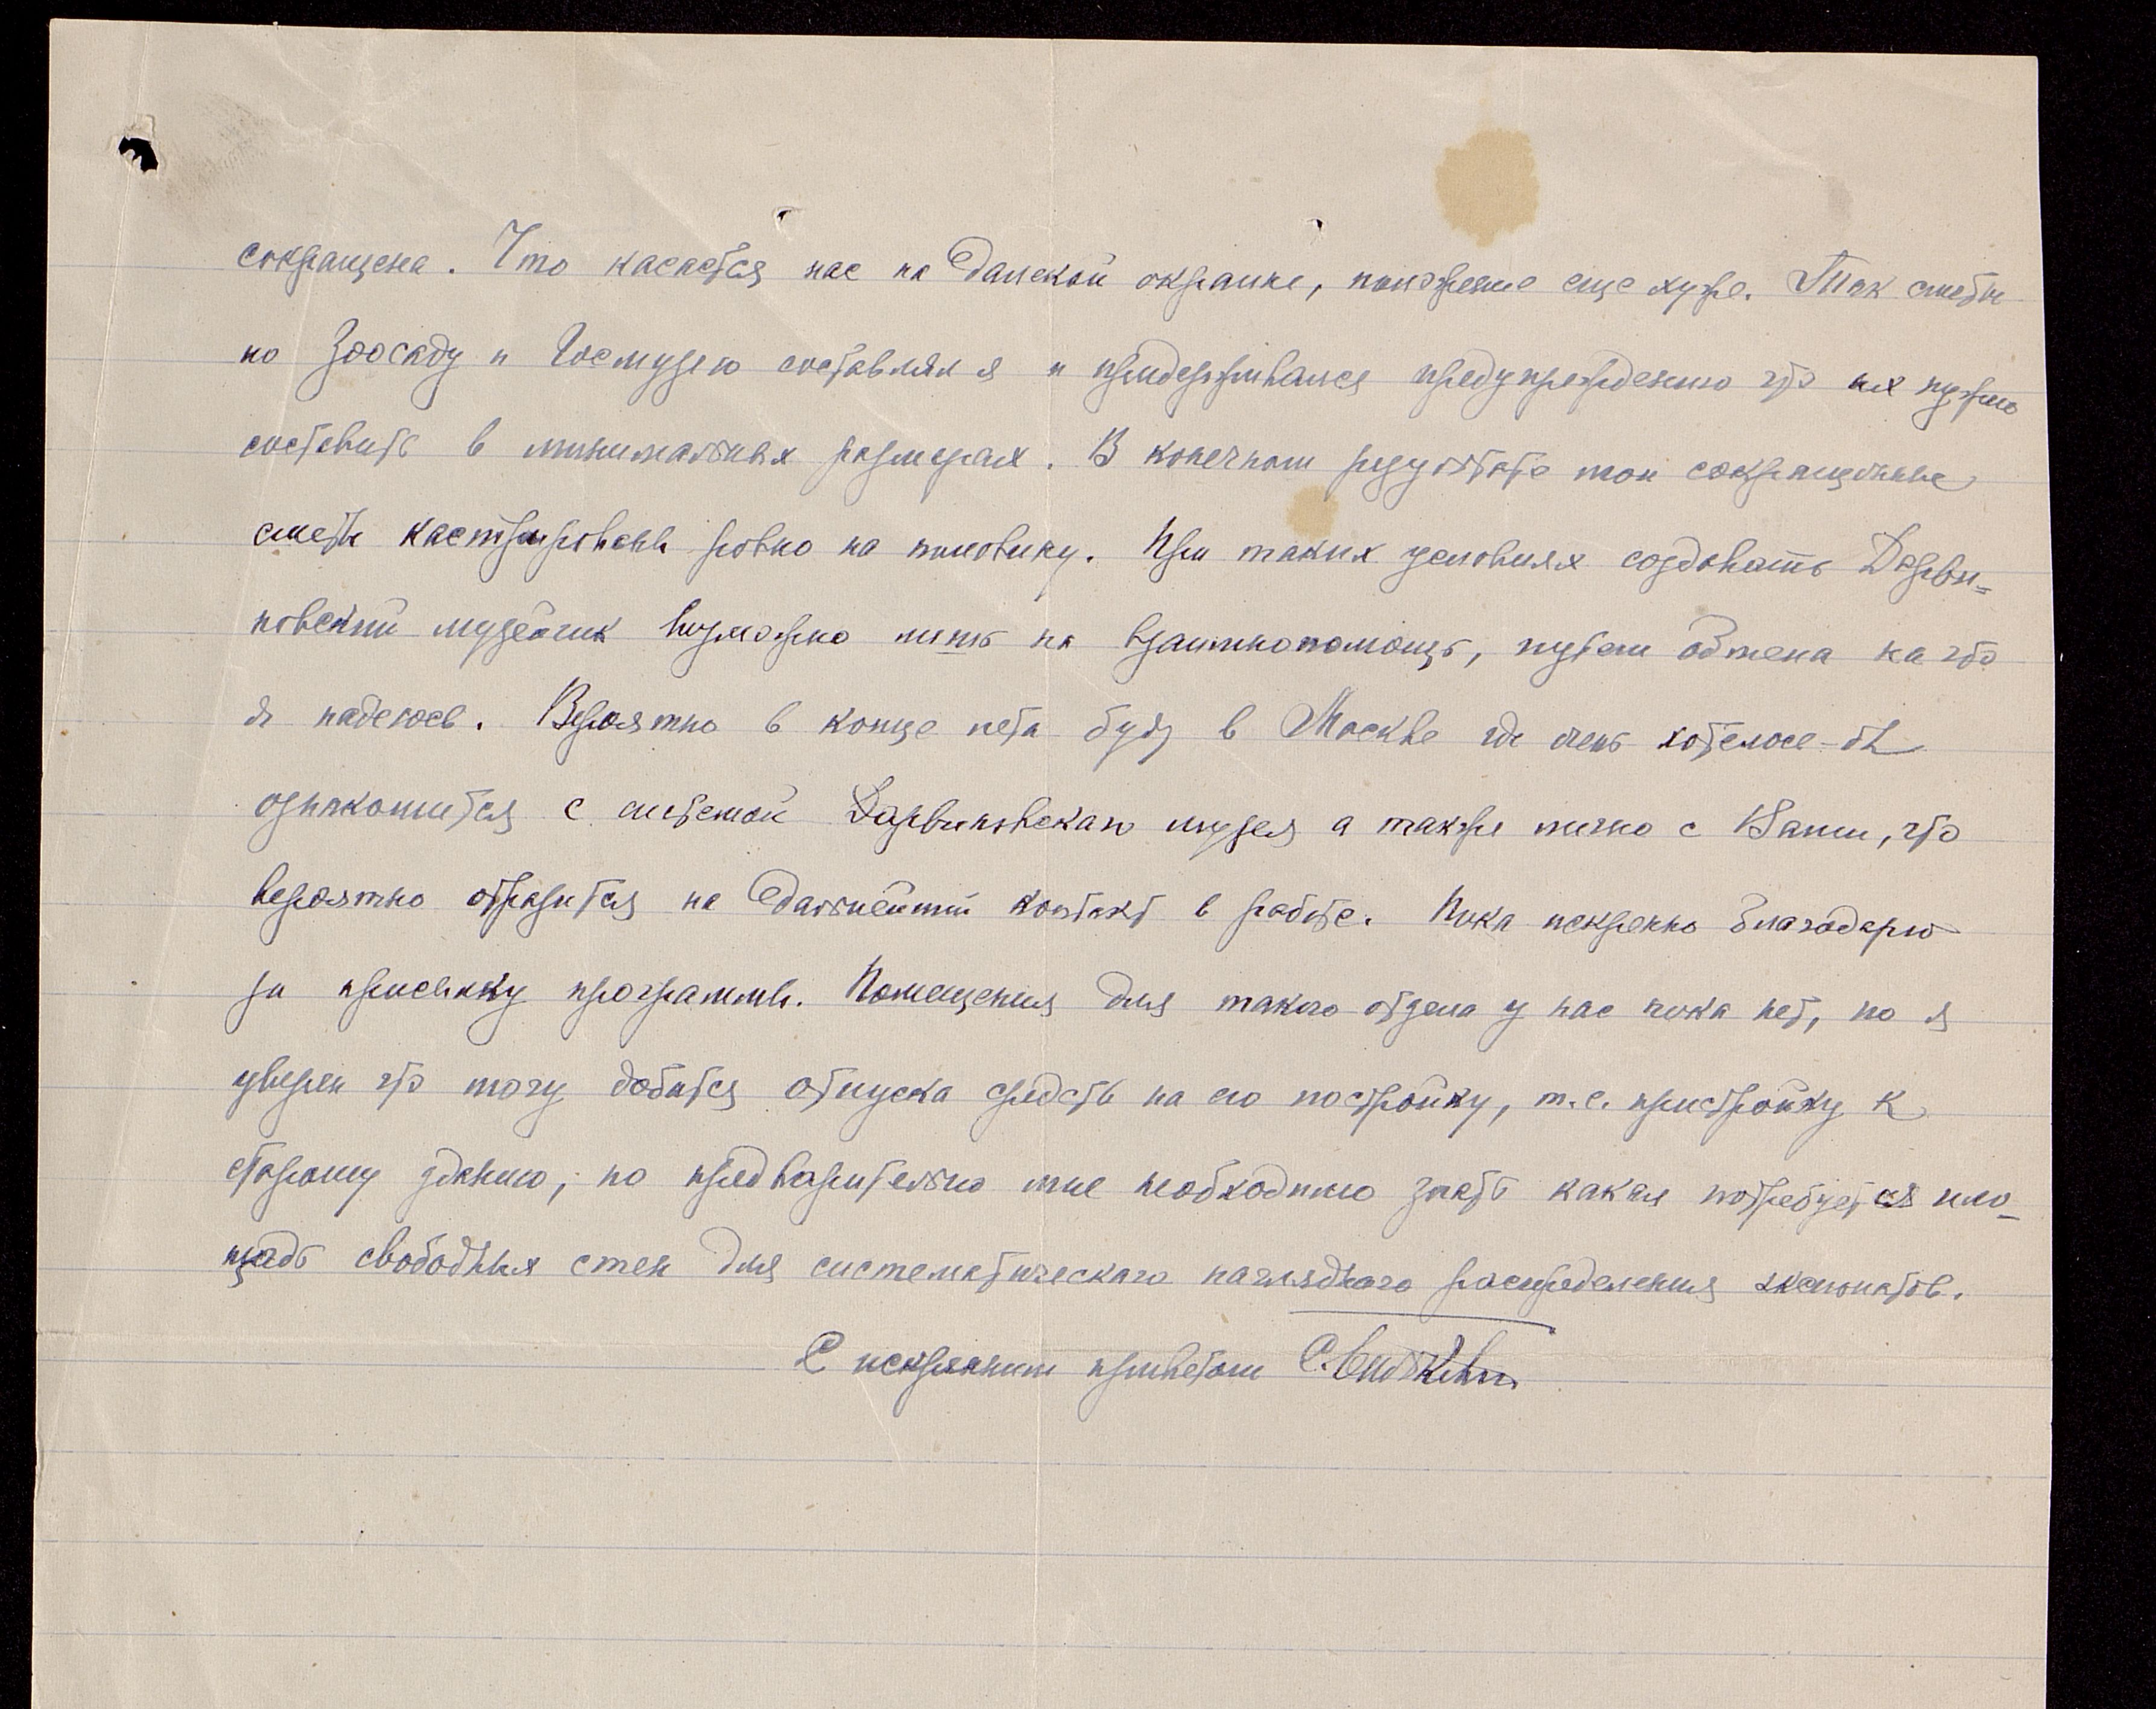 сокращена. Что касается нас на далекой окраине, положение еще хуже. Так сметы
по Зоосаду и Госмузею составлял я и придерживался предупреждению что их нужно
составить в минимальных размерах. В конечном результате мои сокращенные
сметы кастрированы ровно на половину. При таких условиях создавать Дарви=
новский музейчик возможно лишь на взаимнопомощь, путем обмена на что
я надеюсь. Вероятно в конце лета буду в Москве где очень хотелось-бы
ознакомится с системой Дарвиновскаго музея а также лично с Вами, что
вероятно отразится на дальнейший контакт в работе. Пока искренно благодарю
за присылку программы. Помещения для такого отдела у нас пока нет, но я
уверен что могу добится отпуска средств на его постройку, т.е. пристройку к
старому зданию; но предварительно мне необходимо знать какая потребуется пло-
щадь свободных стен для систематическаго нагляднаго распределения экспонатов.
С искренним приветом С.